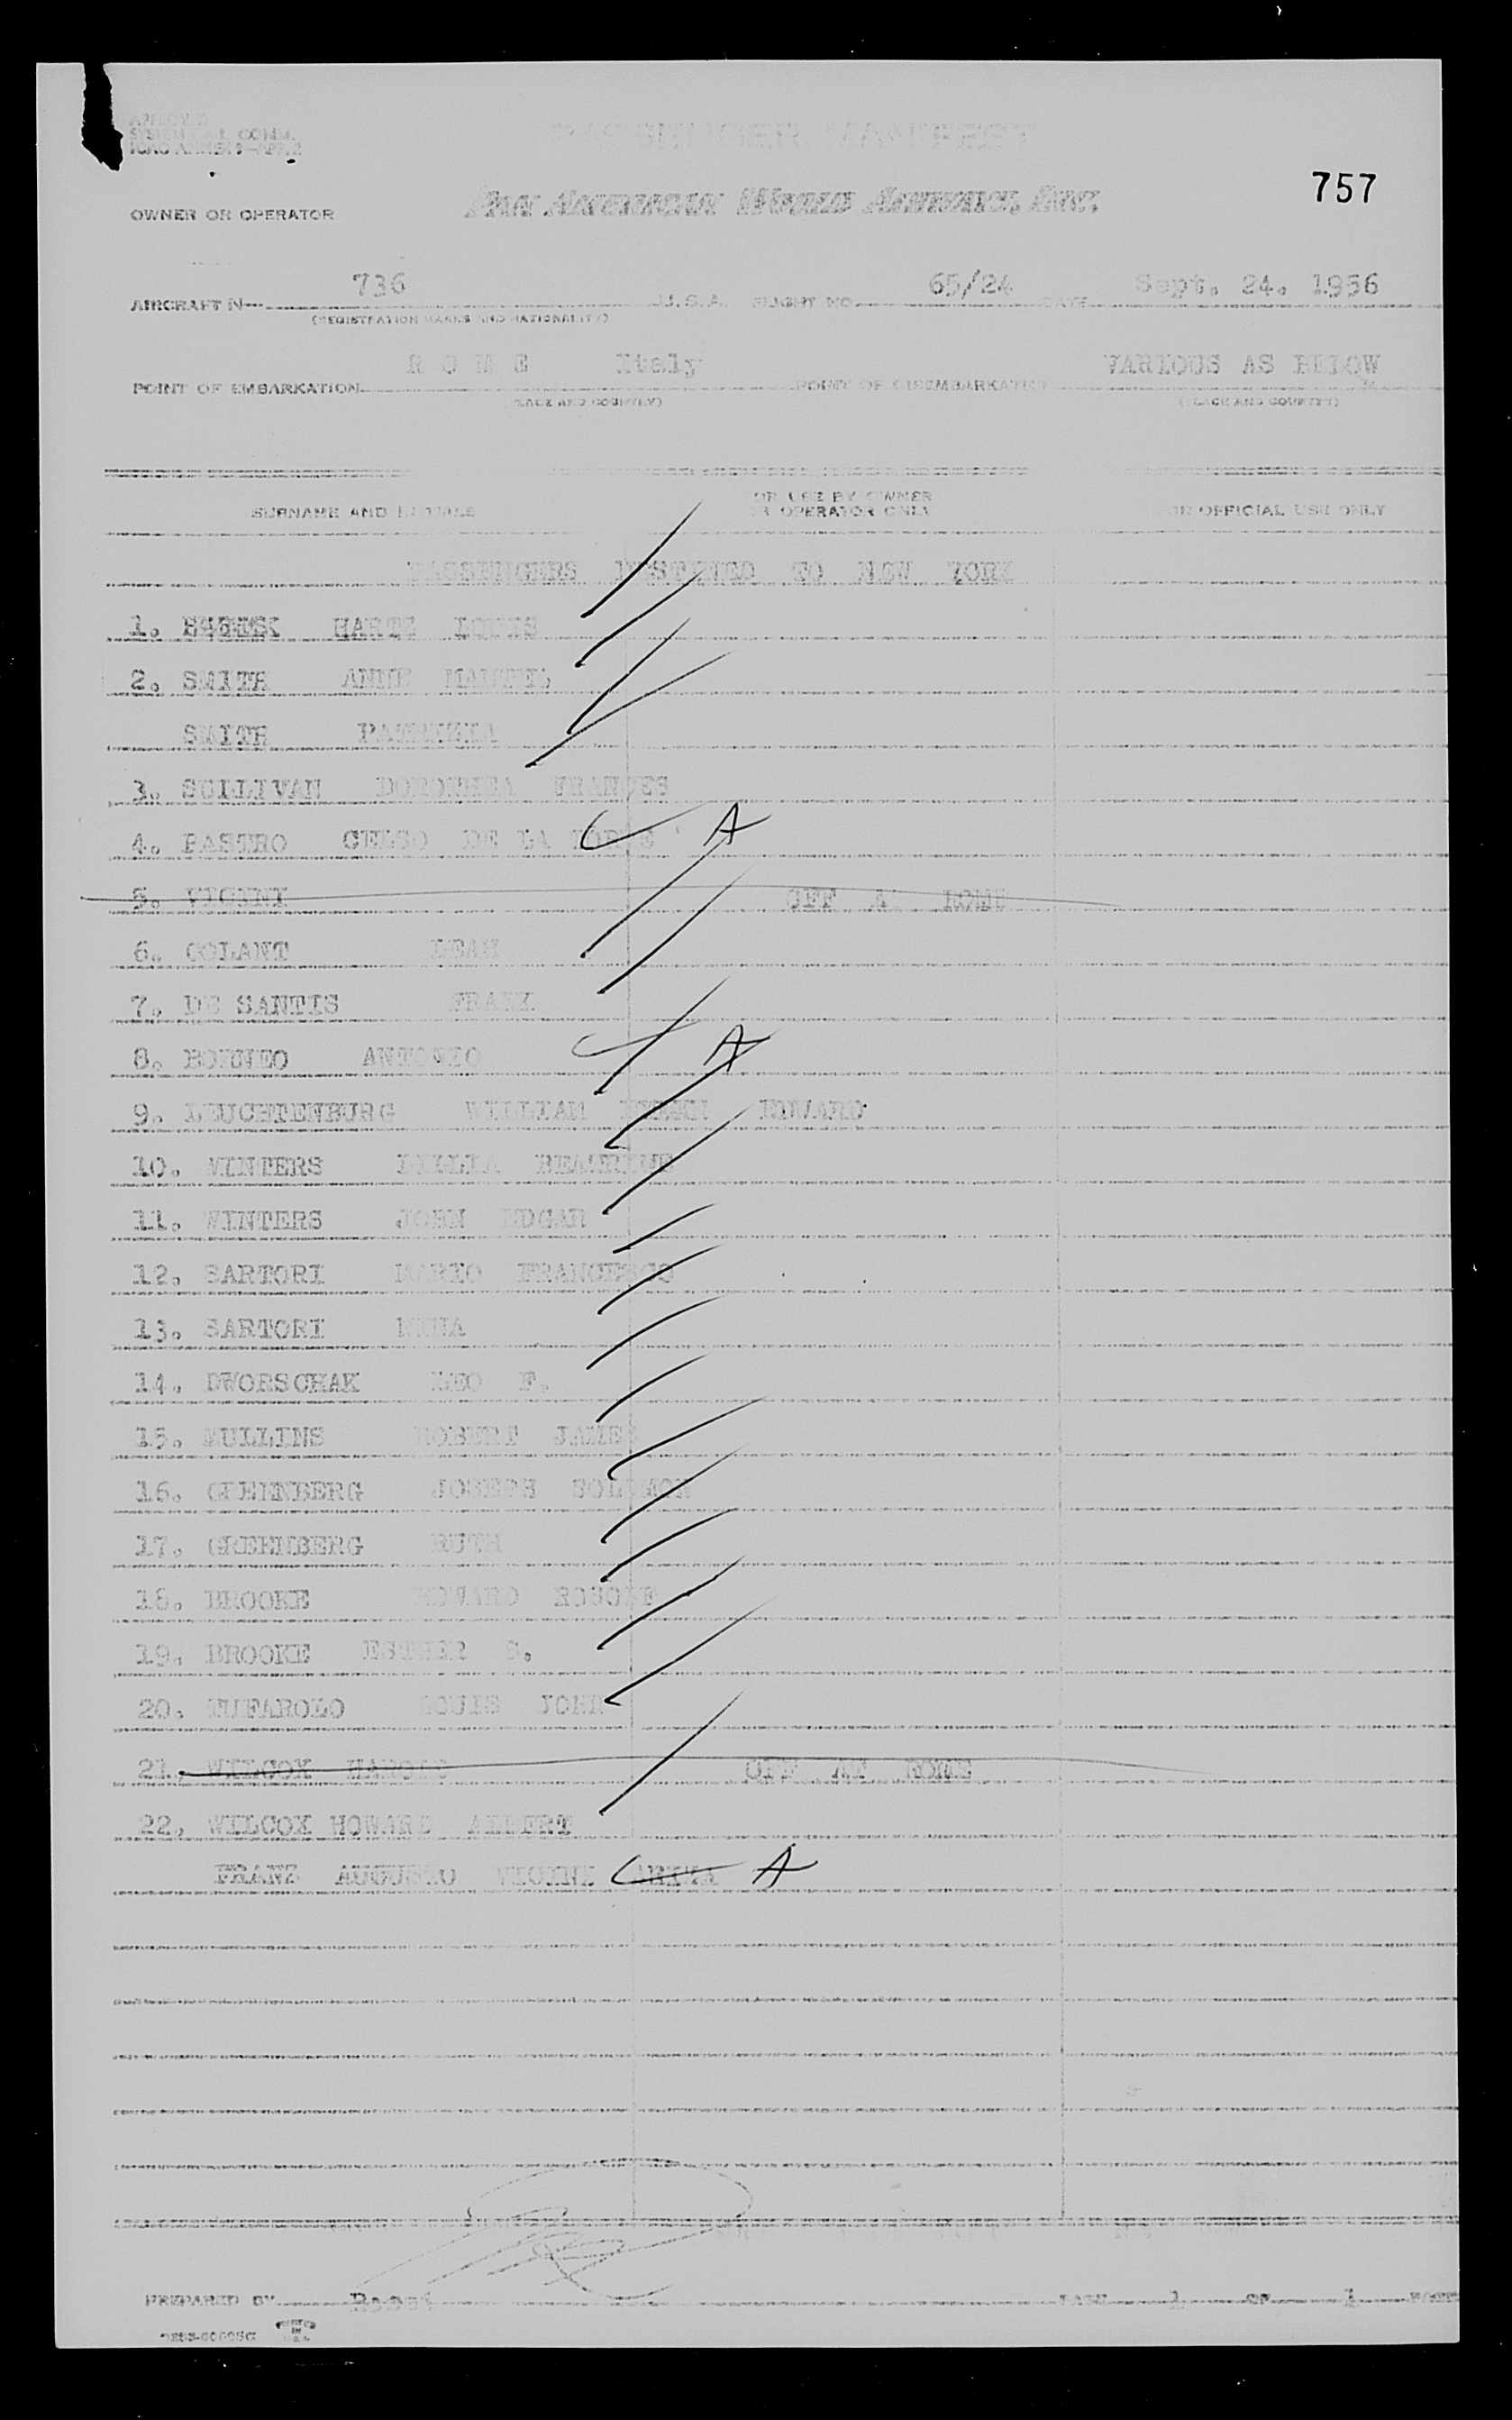 PASSENGER MANIFEST
757
OWNER OR OPERATOR PAN AMERICAN WORLD AIRWAYS, INC.
AIRCRAFT N 736 U.S.A. FLIGHT NO 65/24 DATE Sept. 24. 1956
(REGISTRATION MARKS AND NATIONALITY)
POINT OF EMBARKATION R O M E Italy POINT OF DISEMBARKATION VARIOUS AS BELOW
(PLACE AND COUNTRY) (PLACE AND COUNTRY)
SURNAME AND INITIALS FOR USE BY OWNER OR OPERATOR ONLY FOR OFFICIAL USE ONLY
PASSENGERS DESTINED TO NEW YORK
1. LOUIS
2. SMITH ANNE
SMITH PATRICIA
3. SULLIVAN DOROTHEA FRANCES
4. PASTRO CELSO DE LA A
5. VICINI OFF AT ROME
6. COLANT
7. DE SANTIS FRANK
8. ANTONIO A
9. LEUCHTENBURG WILLIAM EDWARD
10. WINTERS BEATRICE
11. WINTERS JOHN EDGAR
12. SARTORI MARIO FRANCESCO
13. SARTORI
14. DWORSCHAK LEO F.
15. MULLINS ROBERT JAMES
16. GREENBERG JOSEPH SOLOMON
17. GREENBERG RUTH
18. BROOKE
19. BROOKE ESTHER S.
20. LOUIS JOHN
21. WILCOX HAROLD OFF AT ROME
22. WILCOX HOWARD ALBERT
FRANZ AUGUSTO VICINI A
PREPARED BY Rossi PAGE 1 OF 1